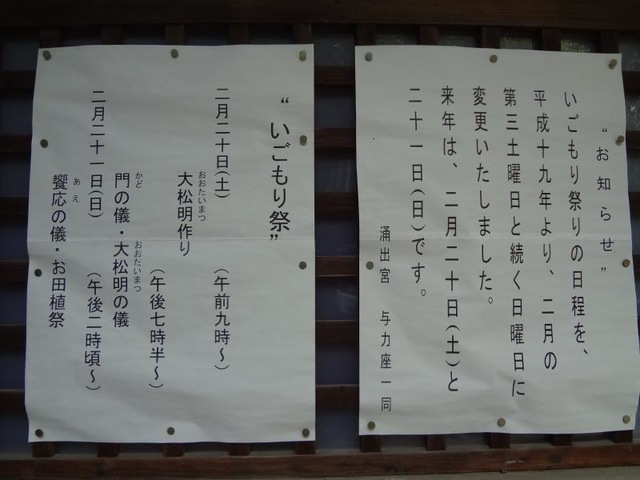 “お知らせ”
いごもり祭りの日程を、
平成十九年より、二月の
第三土曜日と続く日曜日に
変更いたしました。
来年は、二月二十日(土)と
二十一日(日)です。
涌出宮 与力座一同
“いごもり祭”
二月二十日(土) (午前九時~)
大松明作り
おおたいまつ
(午後七時半~)
門の儀・大松明の儀
かど おおたいまつ
二月二十一日(日) (午後二時頃~)
饗応の儀・お田植祭
あえ